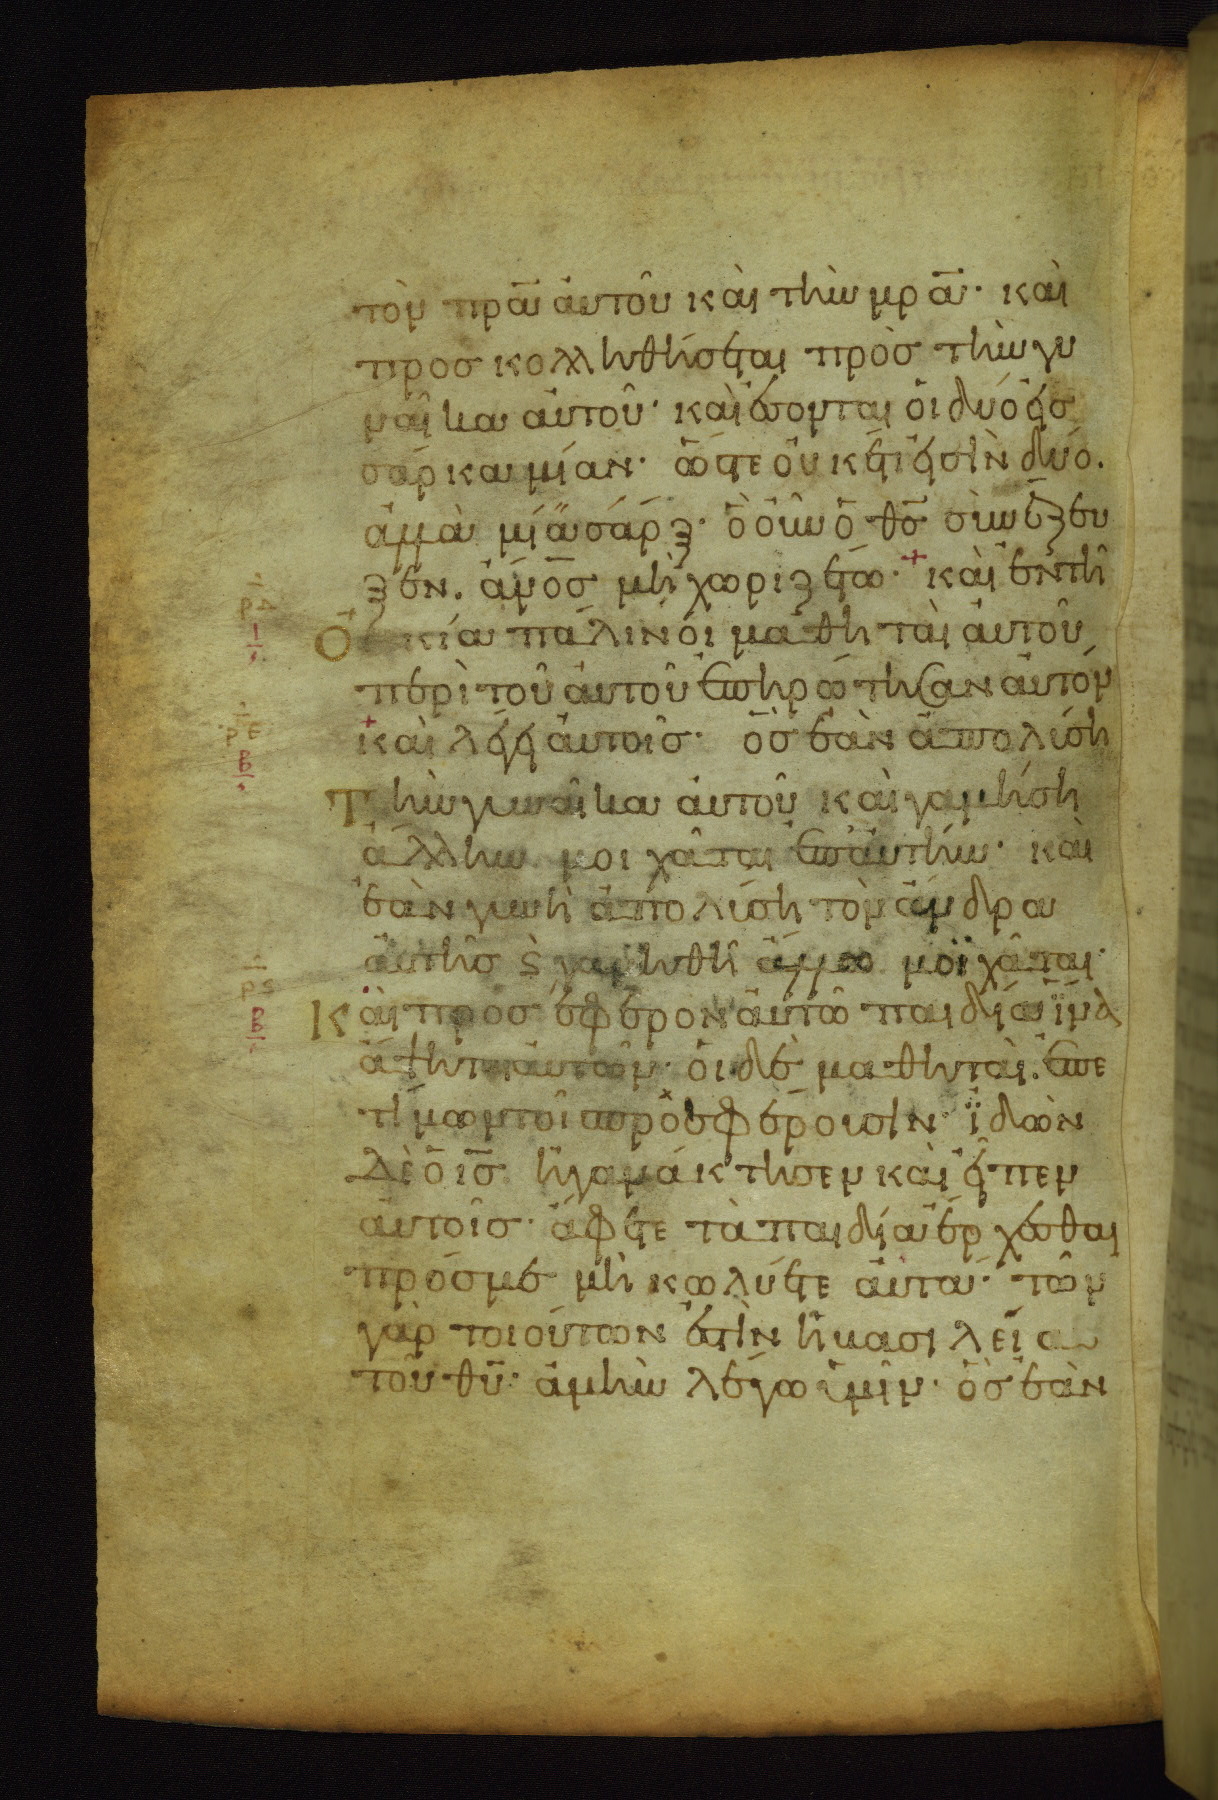 τὸν πρ̅α̅ αὐτοῦ καὶ τὴν μρ̅α̅· καὶ
προσκολληθήσεται πρὸσ τὴν γυ
ναῖκα αὐτοῦ· καὶ ἔσονται οἱ δύο εἰσ
σάρκα μίαν· ὥστε οὐκέτι εἰσὶν δύο.
ἀλλὰ μία σάρξ· ὃ οὖν ὁ θσ̅ συνέζευ
ξεν. ἀν̅οσ̅ μὴ χωριζέτω· + καὶ ἐν τῆ
οἰκία πάλιν οἱ μαθηταὶ αὐτοῦ
περὶ τοῦ αὐτοῦ ἐπηρώτησαν αὐτόν
+ καὶ λέγει αὐτοῖσ· ὃσ ἐὰν ἀπολύση
τὴν γυναῖκα αὐτοῦ καὶ γαμήση
ἄλλην μοιχᾶται ἐπ' αὐτήν· καὶ
ἐὰν γυνὴ ἀπολύση τὸν ἄνδρα
αὐτῆσ ϗ γαμηθῆ ἄλλω μοιχᾶται·
Καὶ προσέφερον αὐτῶ παιδία ἵνα
ἅψηται αὐτῶν· οἱ δὲ μαθηταὶ ἐπε
τίμων τοῖ προσφέρουσιν· ἰδὼν
δὲ ὁ ισ̅ ἠγανάκτησεν καὶ εἶπεν
αὐτοῖσ· ἄφετε τὰ παιδία ἔρχεσθαι
πρόσ με μὴ κωλύετε αὐτά· τῶν
γὰρ τοιούτων ἐστὶν ἡ βασιλεία
τοῦ θυ̅· ἀμὴν λέγω ὑμῖν· ὃσ ἐὰν
ρδ
ι
ρε
β
ρς
β